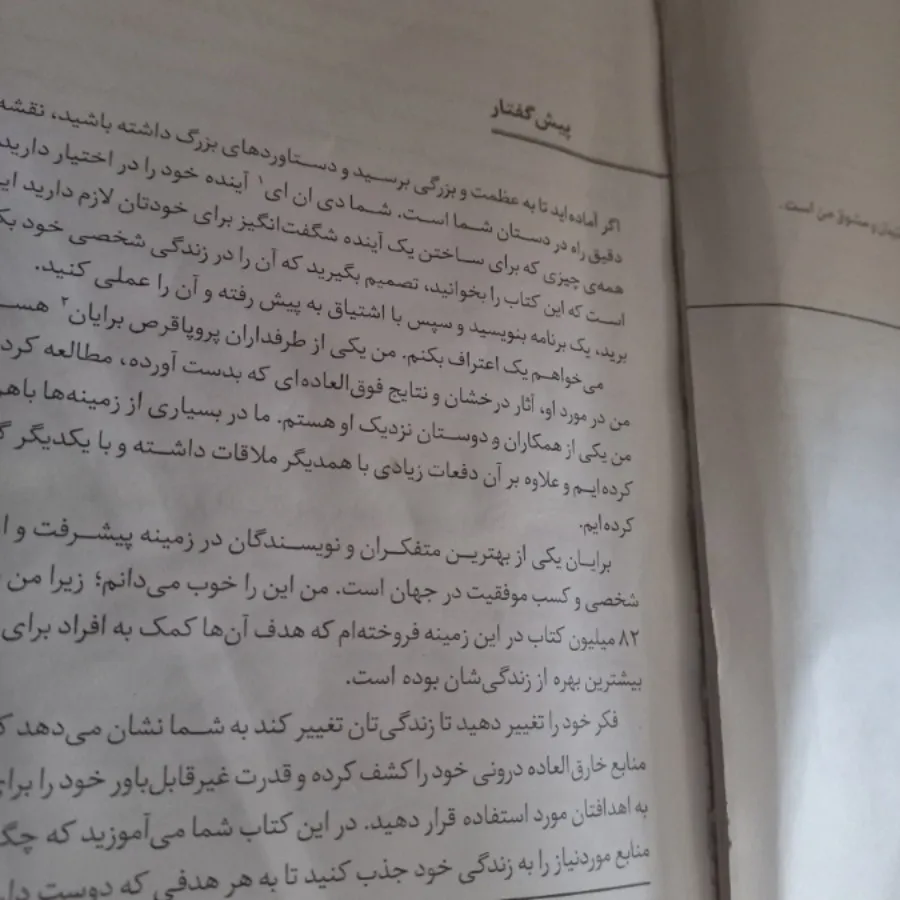 پیش گفتار
اگر آماده‌اید تا به عظمت و بزرگی برسید و دستاوردهای بزرگ داشته باشید، نقشه
دقیق راه در دستان شما است. شما دی ان ای۱ آینده خود را در اختیار دارید
همه‌ی چیزی که برای ساختن یک آینده شگفت‌انگیز برای خودتان لازم دارید
است که این کتاب را بخوانید، تصمیم بگیرید که آن را در زندگی شخصی خود
برید، یک برنامه بنویسید و سپس با اشتیاق به پیش رفته و آن را عملی کنید.
می‌خواهم یک اعتراف بکنم. من یکی از طرفداران پروپاقرص برایان۲
من در مورد او، آثار درخشان و نتایج فوق‌العاده‌ای که بدست آورده، مطالعه
من یکی از همکاران و دوستان نزدیک او هستم. ما در بسیاری از زمینه‌ها
کرده‌ایم و علاوه بر آن دفعات زیادی با همدیگر ملاقات داشته و با یکدیگر
کرده‌ایم.
برایان یکی از بهترین متفکران و نویسندگان در زمینه پیشرفت و
شخصی و کسب موفقیت در جهان است. من این را خوب می‌دانم؛ زیرا من
۸۲ میلیون کتاب در این زمینه فروخته‌ام که هدف آن‌ها کمک به افراد برای
بیشترین بهره از زندگی‌شان بوده است.
فکر خود را تغییر دهید تا زندگی‌تان تغییر کند به شما نشان می‌دهد
منابع خارق‌العاده درونی خود را کشف کرده و قدرت غیرقابل‌باور خود را
به اهدافتان مورد استفاده قرار دهید. در این کتاب شما می‌آموزید که
منابع موردنیاز را به زندگی خود جذب کنید تا به هر هدفی که دوست
و مشوق من است.